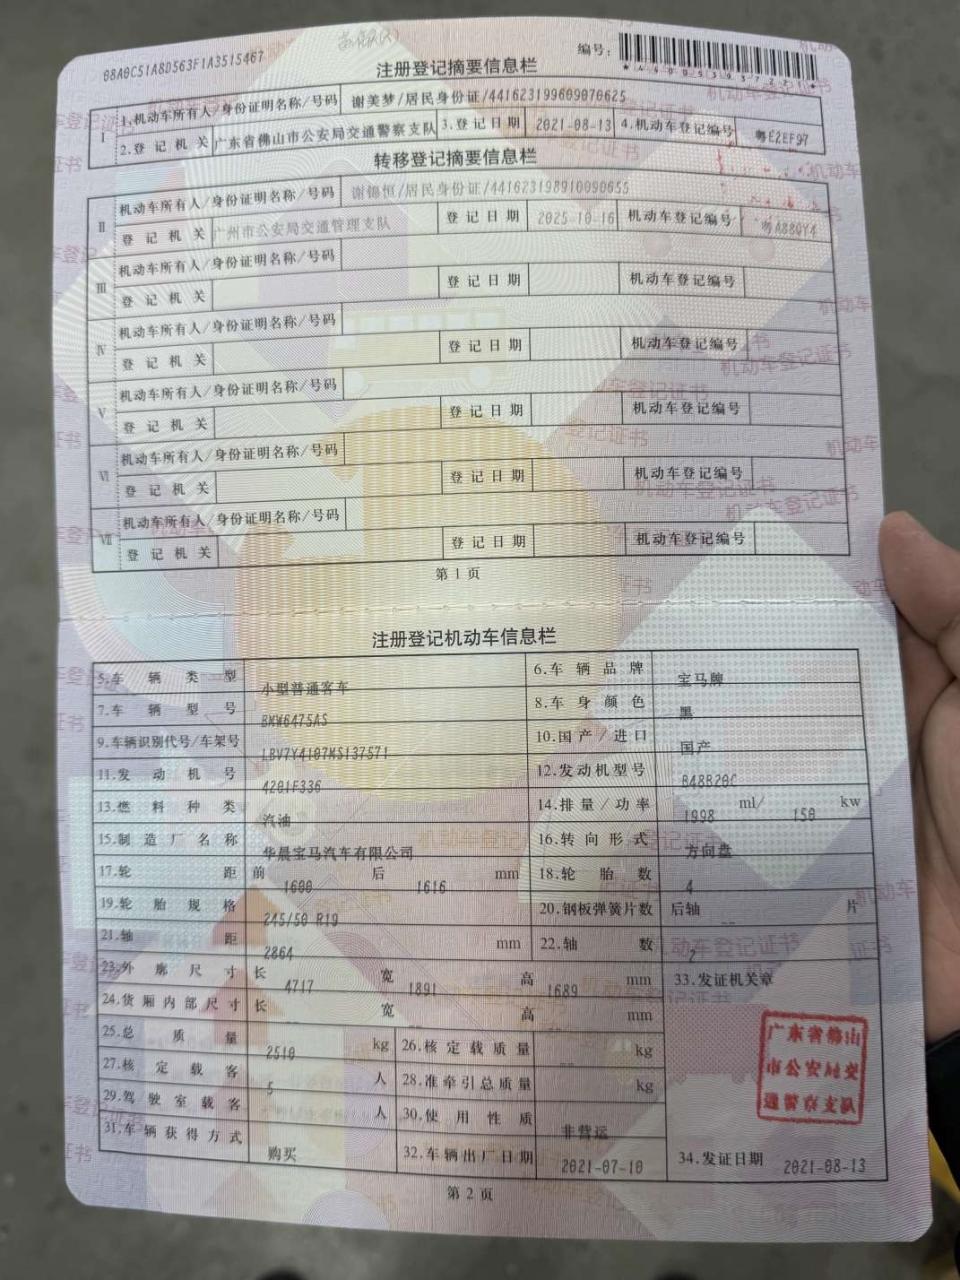 08A0C51A8D563F1A3515467
编号:
注册登记摘要信息栏
I 1.机动车所有人/身份证明名称/号码 谢美梦/居民身份证/441623199609070625
2.登记机关 广东省佛山市公安局交通警察支队 3.登记日期 2021-08-13 4.机动车登记编号 粤E2EF97
转移登记摘要信息栏
II 机动车所有人/身份证明名称/号码 谢锦恒/居民身份证/441623198910090655
登记机关 广州市公安局交通管理支队 登记日期 2025-10-16 机动车登记编号 粤A88QY4
III 机动车所有人/身份证明名称/号码
登记机关 登记日期 机动车登记编号
IV 机动车所有人/身份证明名称/号码
登记机关 登记日期 机动车登记编号
V 机动车所有人/身份证明名称/号码
登记机关 登记日期 机动车登记编号
VI 机动车所有人/身份证明名称/号码
登记机关 登记日期 机动车登记编号
VII 机动车所有人/身份证明名称/号码
登记机关 登记日期 机动车登记编号
第1页
注册登记机动车信息栏
5.车辆类型 小型普通客车 6.车辆品牌 宝马牌
7.车辆型号 BMW6475AS 8.车身颜色 黑
9.车辆识别代号/车架号 LBV7Y4107MS137571 10.国产/进口 国产
11.发动机号 4201F336 12.发动机型号 B48B20C
13.燃料种类 汽油 14.排量/功率 1998 ml/ 150 kw
15.制造厂名称 华晨宝马汽车有限公司 16.转向形式 方向盘
17.轮距 前 1600 后 1616 mm 18.轮胎数 4
19.轮胎规格 245/50 R19 20.钢板弹簧片数 后轴 -- 片
21.轴距 2864 mm 22.轴数 2
23.外廓尺寸 长 4717 宽 1891 高 1689 mm 33.发证机关章
24.货厢内部尺寸 长 -- 宽 -- 高 -- mm
25.总质量 2510 kg 26.核定载质量 -- kg
27.核定载客 5 人 28.准牵引总质量 -- kg
29.驾驶室载客 -- 人 30.使用性质 非营运
31.车辆获得方式 购买 32.车辆出厂日期 2021-07-10 34.发证日期 2021-08-13
广东省佛山
市公安局交
通警察支队
第2页